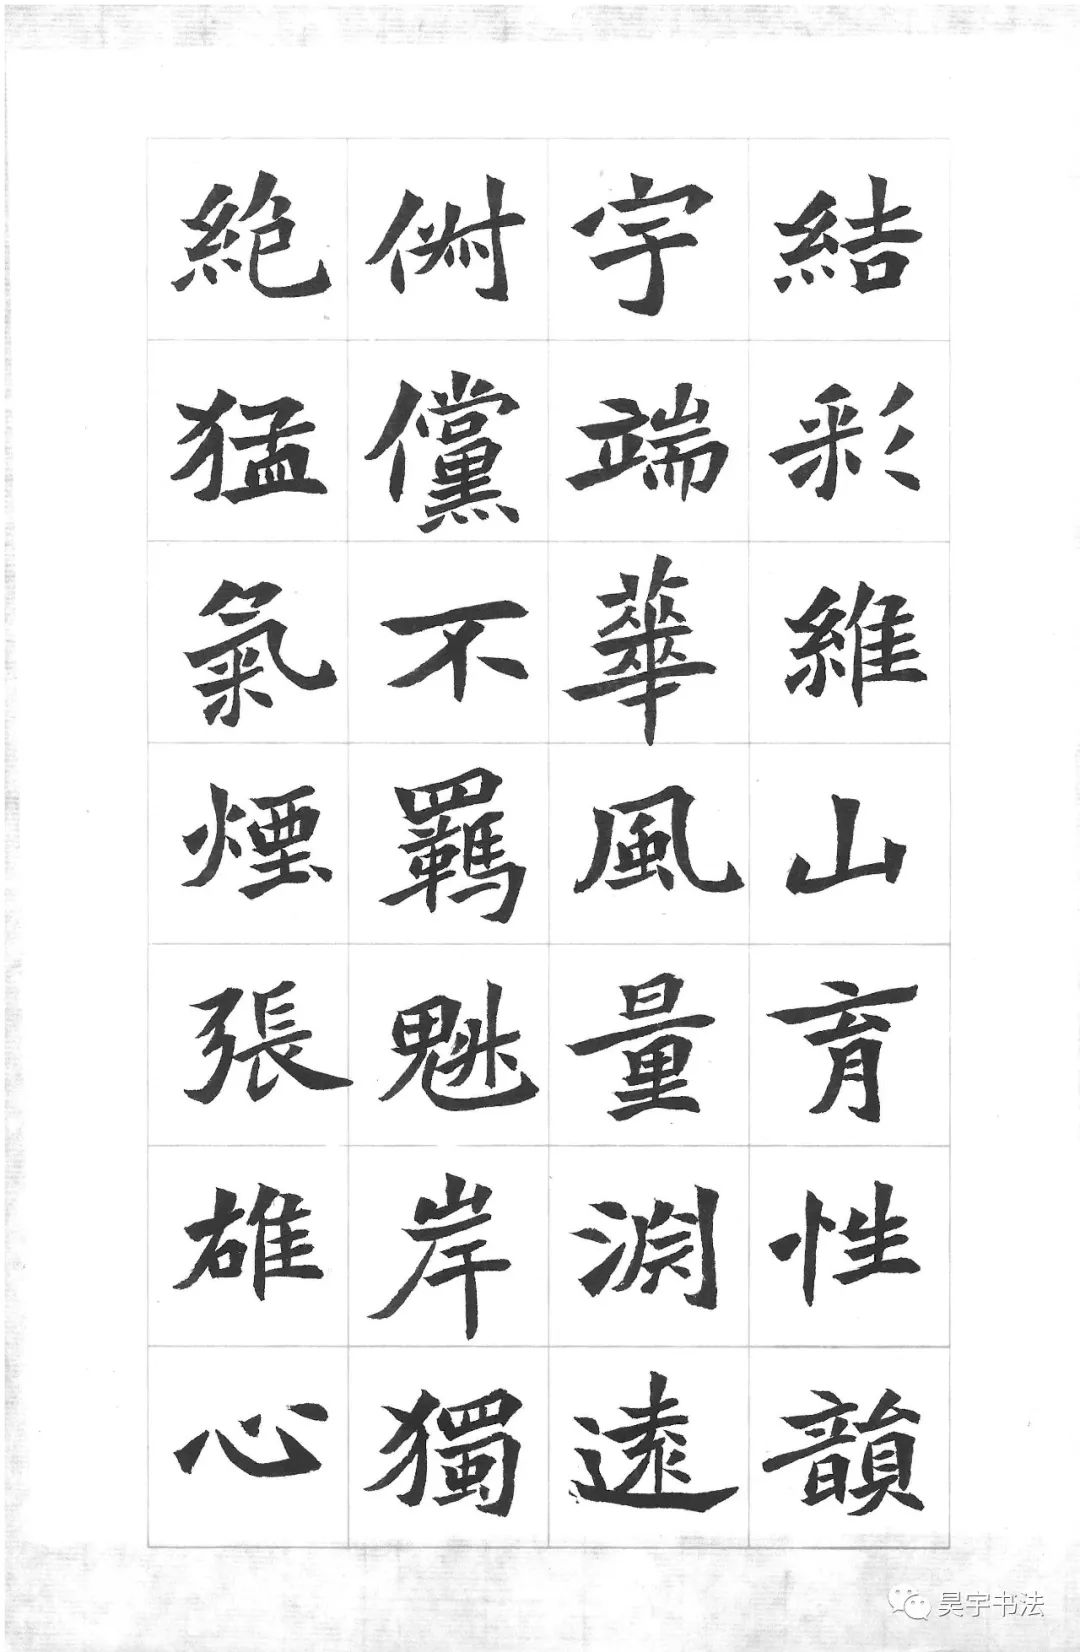 結彩維山育性韻
宇端華風量淵遠
俶儻不羈魁岸獨
絶猛氣煙張雄心
昊宇书法